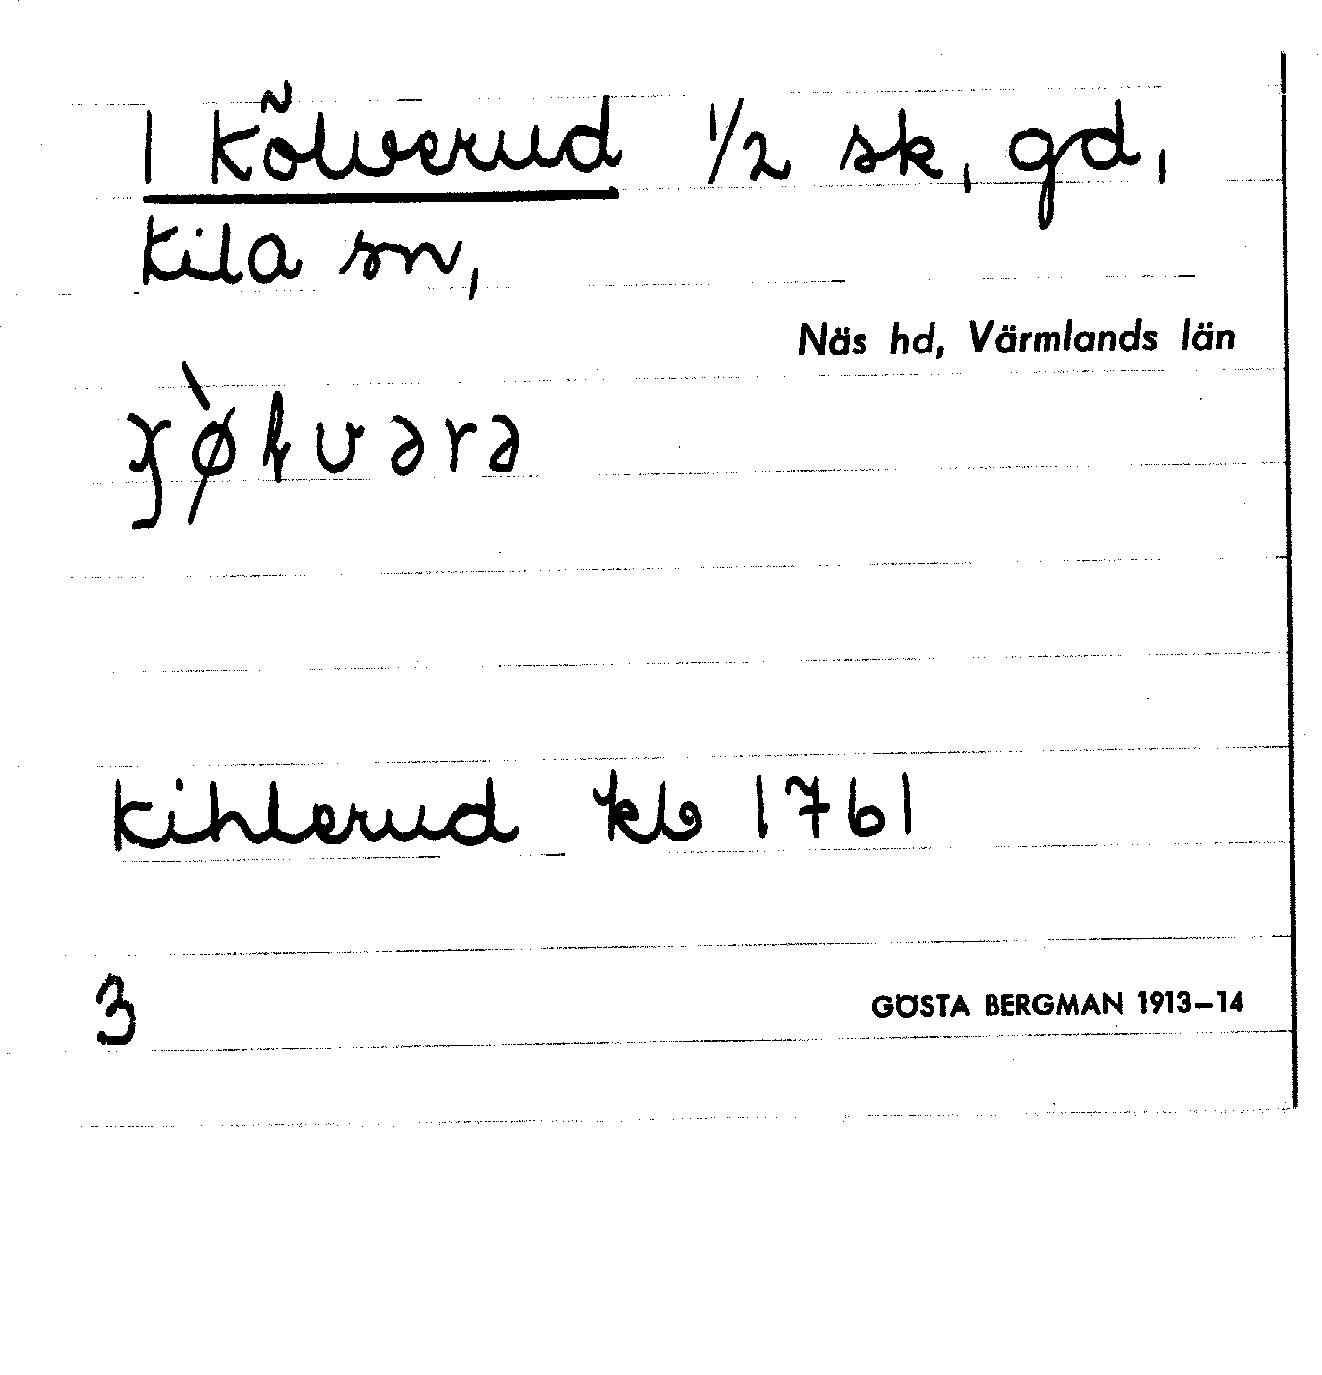 1 Kölverud 1/2 sk, gd,
Kila sn,
Näs hd, Värmlands län
Kihlerud kb 1761
3
GÖSTA BERGMAN 1913–14